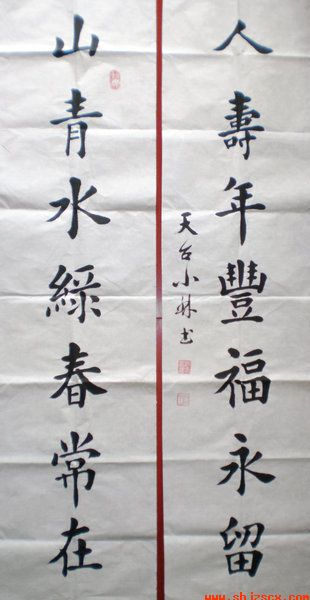 人壽年豐福永留
天台小林书
山青水綠春常在
www.shizscx.com